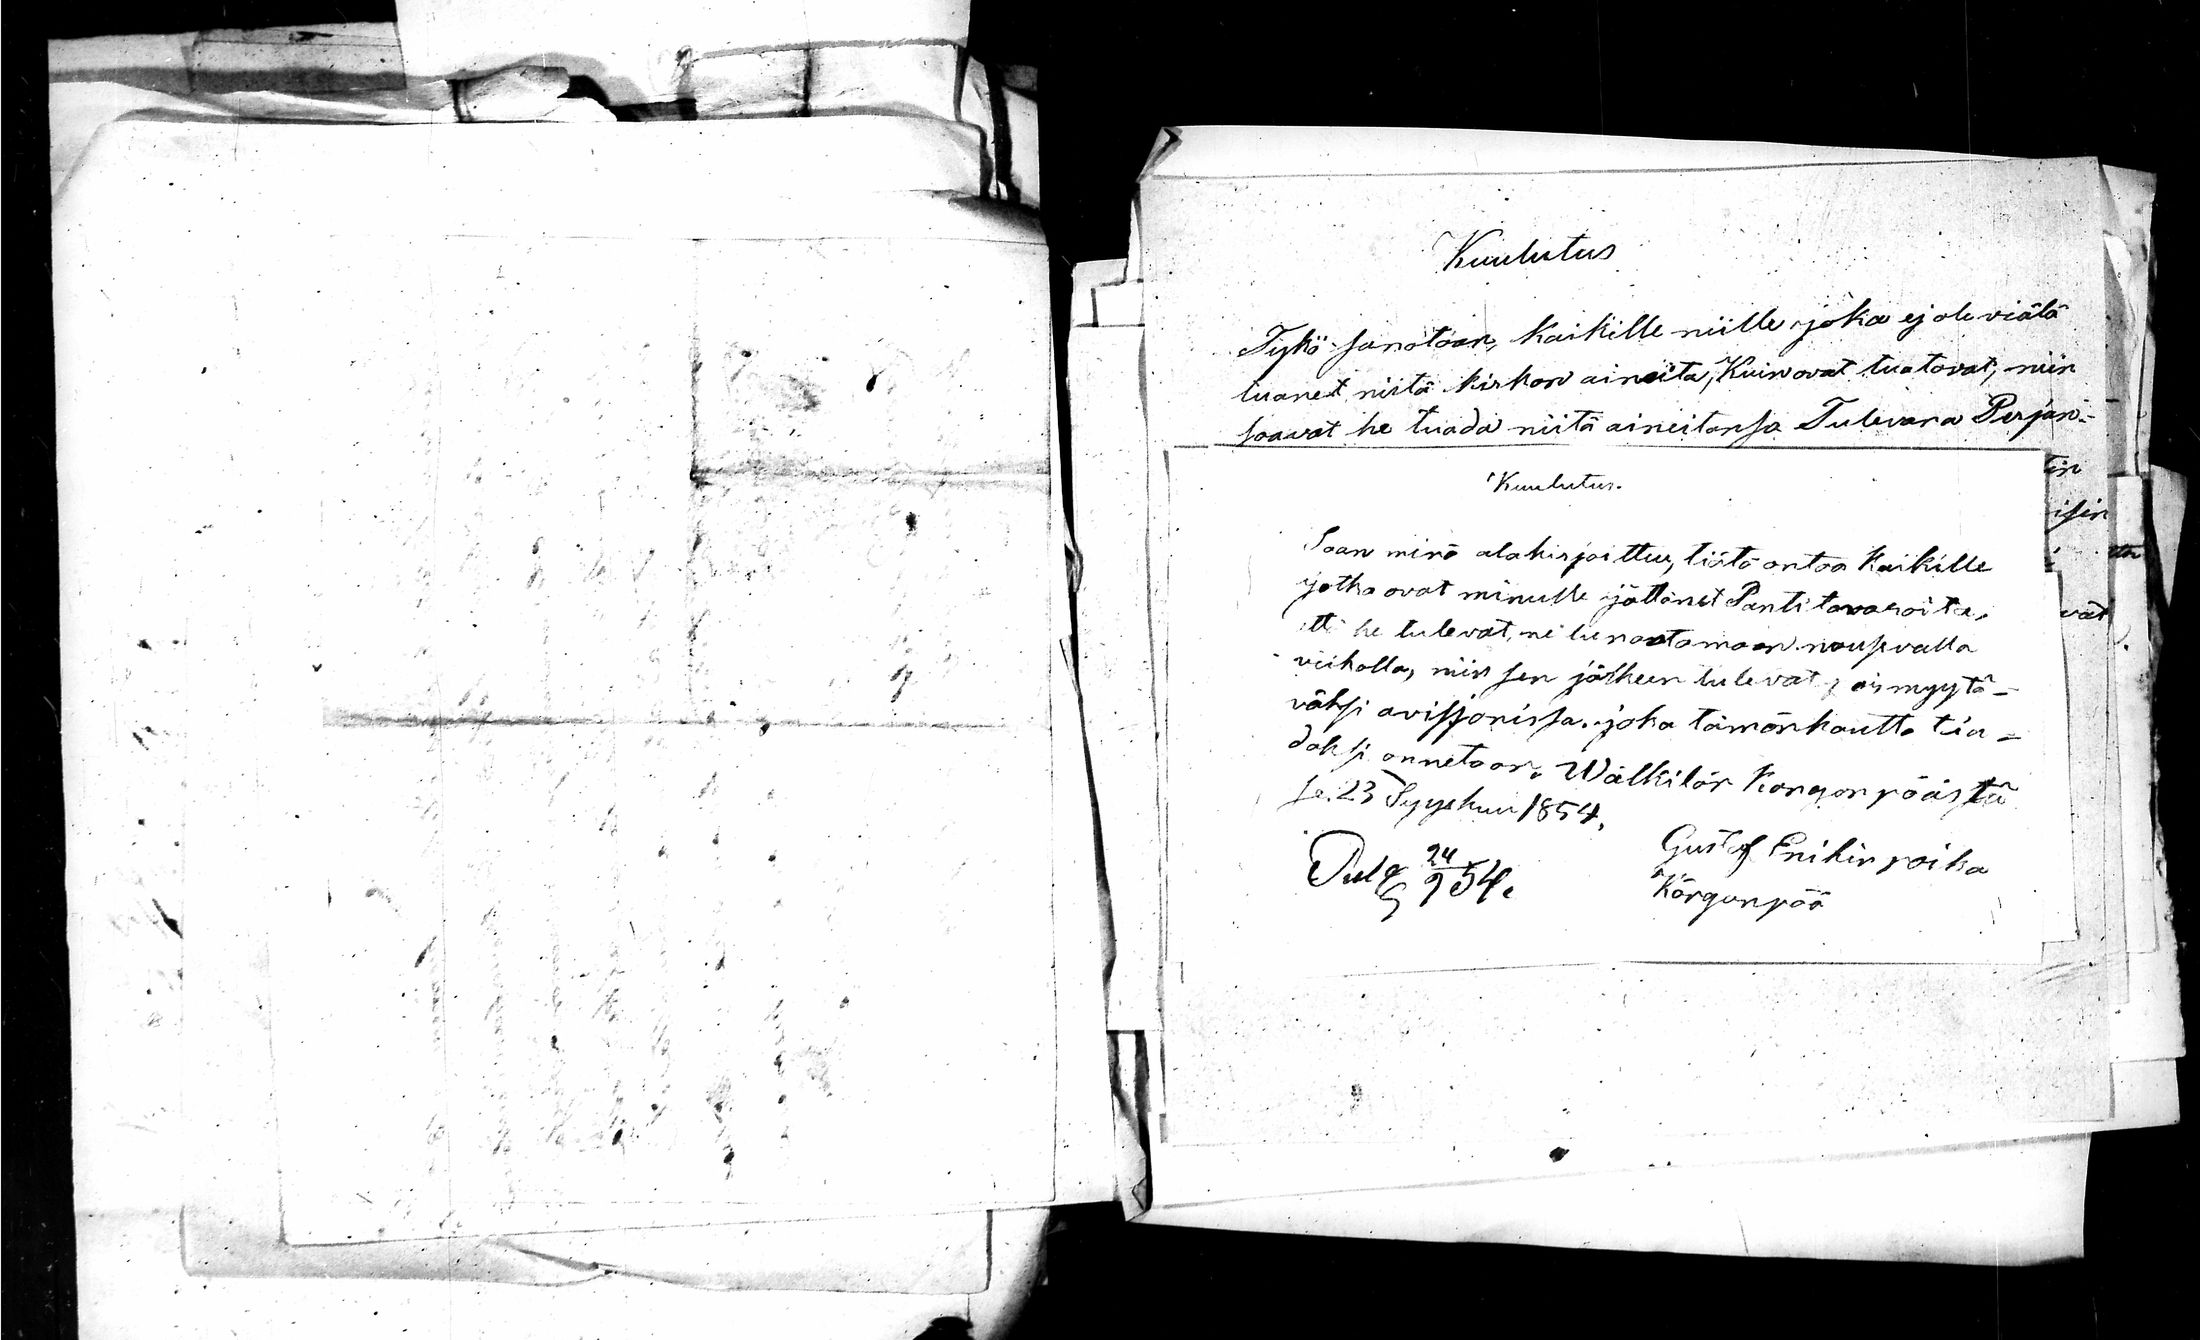 Kuulutus
Tykö sanotaan, Kaikille niille joka ej ole vielä
tuanet niitä kirkon aineita, Kuin ovat tuatavat, niin
saavat he tuada niitä aineitansa Tulevana Perjan-
tin
isen
vat
Kuulutus.
Saan minä alakirjoittu, tiätä antaa Kaikille
jotka ovat minulle jättänet Pantitavaroita,
ttä he tulevat, ne lunastamaan.
viikolla, niin sen jälkeen tulevat, myytä-
väksi avissjonissa. joka tämänkautta tia-
daksi annetaan. Wälkilän Kongonpäästä
se. 23 Syyskuu 1854.
Gustaf Erikin poika
Körgunpää
24
9 54.